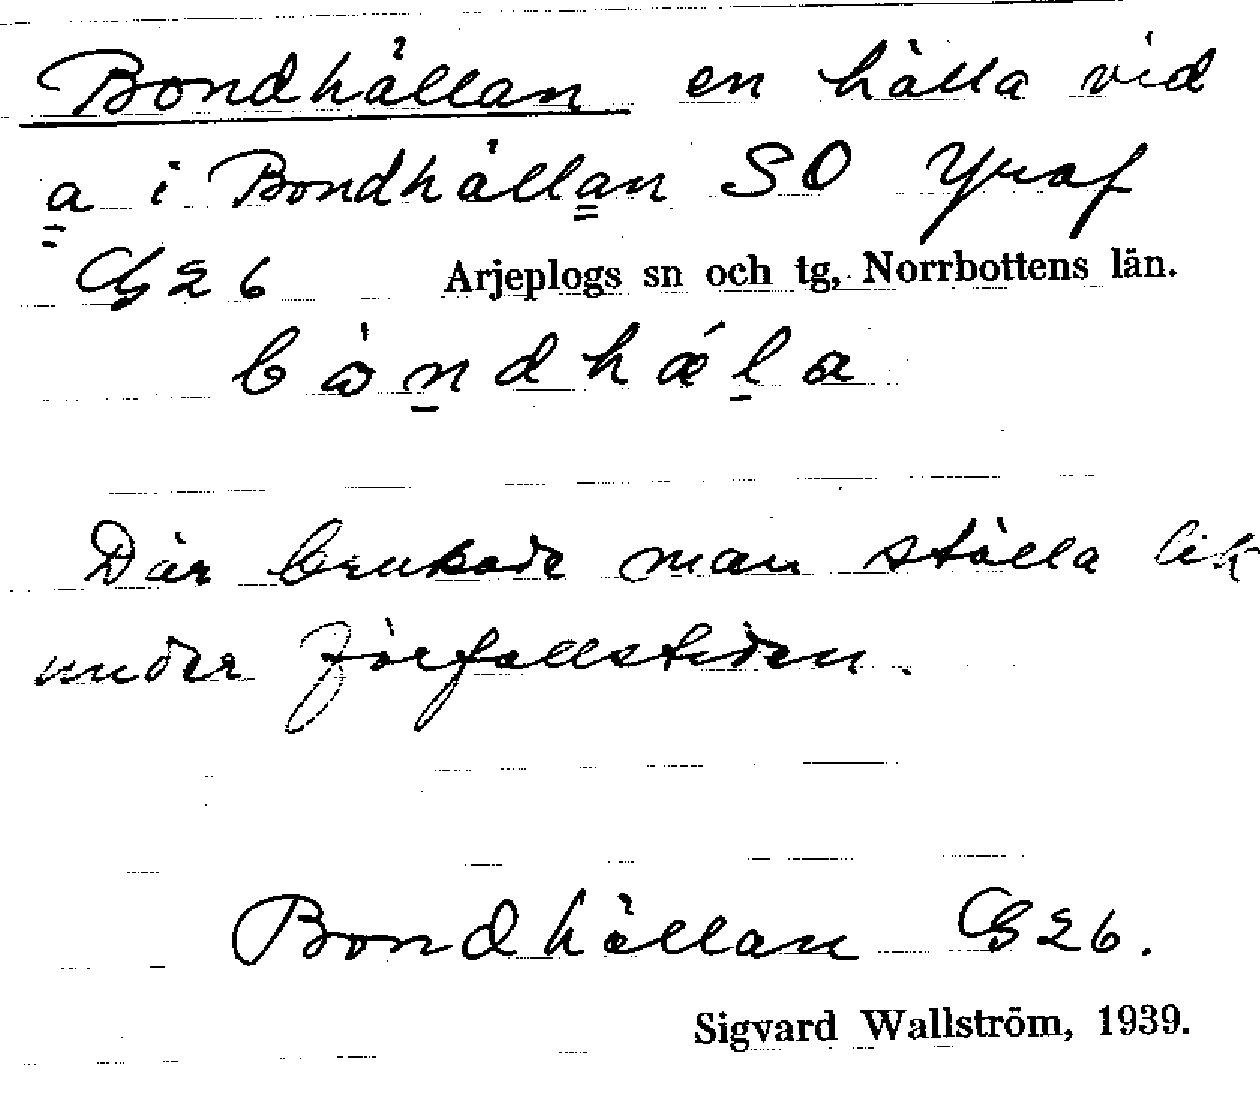 Bondhällan en hälla vid
a i Bondhällan SO Yraf
G 26 Arjeplogs sn och tg, Norrbottens län.
Där brukade man ställa lik
under förfallstiden.
Bondhällan G 26.
Sigvard Wallström, 1939.